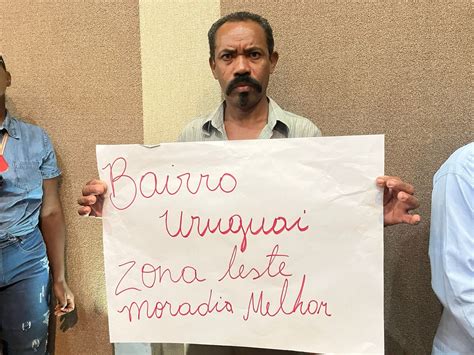 Bairro
Uruguai
Zona leste
moradia Melhor